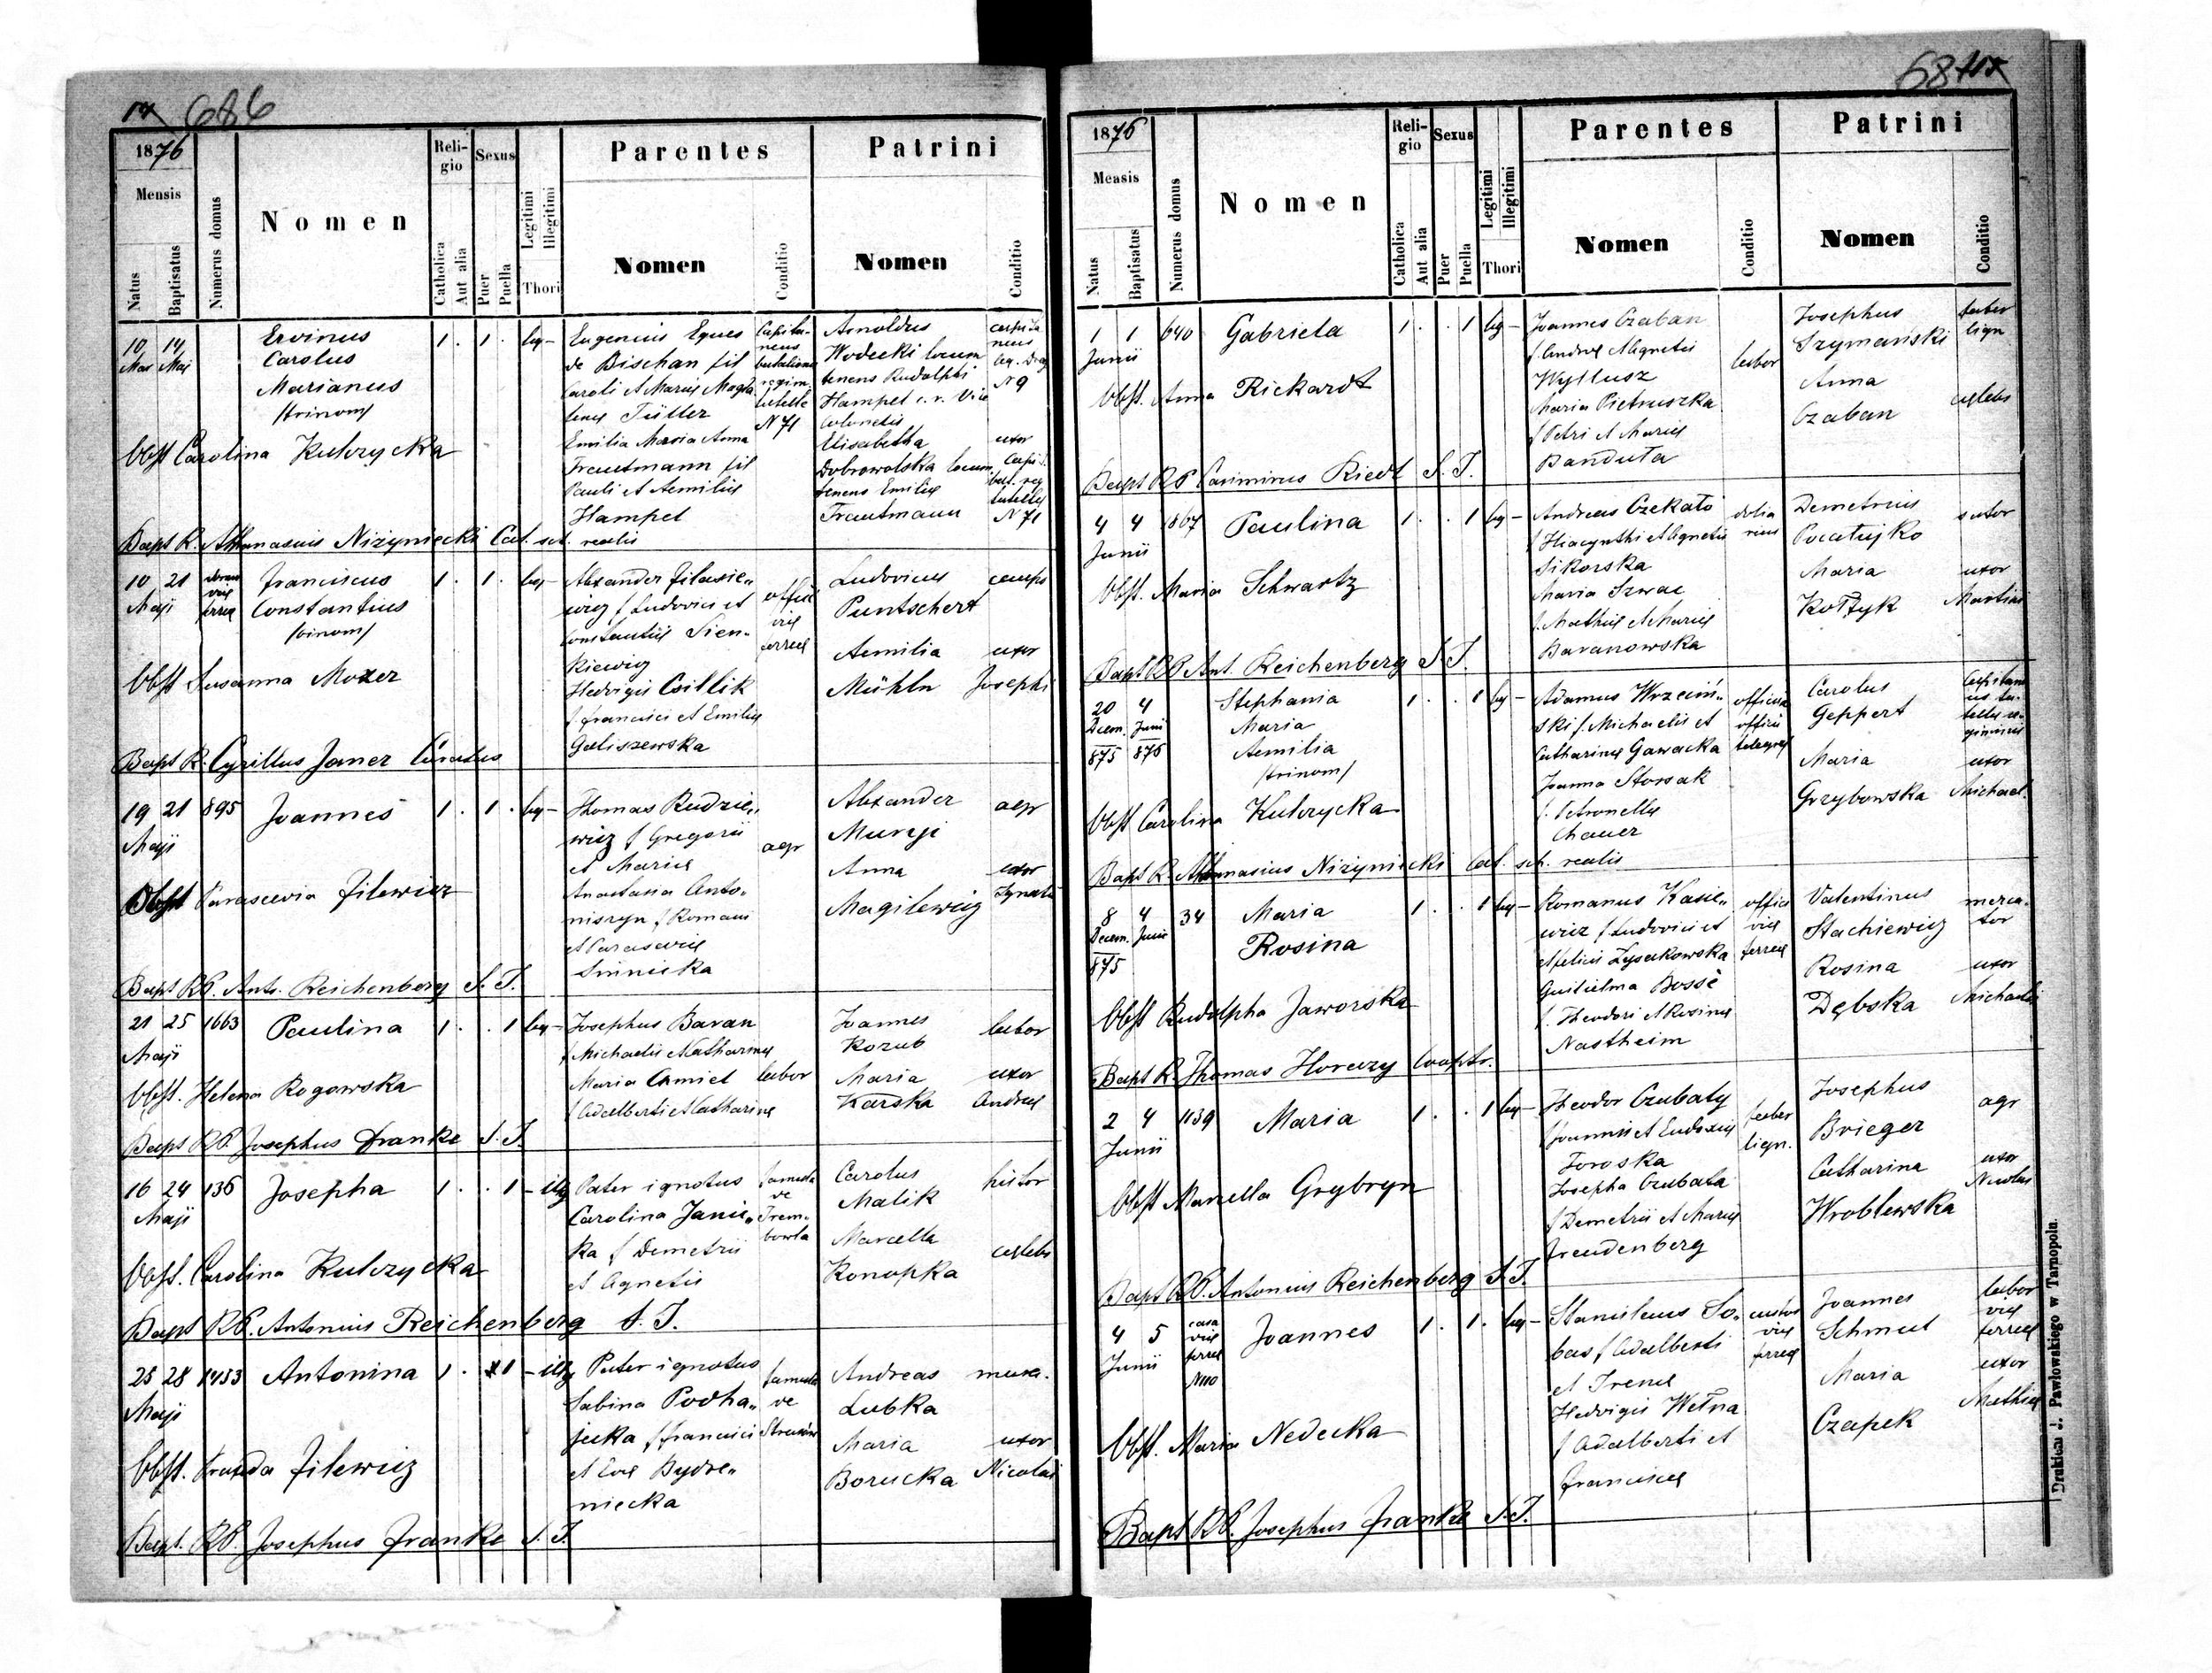 686
1876
Mensis
Natus
Baptisatus
Numerus domus
Nomen
Religio
Catholica
Aut alia
Sexus
Puer
Puella
Legitimi
Illegitimi
Thori
Parentes
Nomen
Conditio
Patrini
Nomen
Conditio
10 14 Ervinus 1. 1. leg- Eugenius Eques Arnoldus
Mai Maj Carolus de Bischan fil Wodecki locum
Marianus Caroli et Mariae Magda tenens Rudolphi N 9
/trinom/ lenae Tüller N 71 Hampel c. r. Vice
Colonelis
Obst Carolina Kulczycka Emilia Maria Anna Elisabetha uxor
Trautmann fil Dobrowolska locum
Pauli et Aemiliae tenens Emilius
Hampel Trautmann N 71
Bapt R. Athanasius Nizyniecki Cat. sch. realis
10 21 Franciscus 1. 1. leg- Alexander Filasie-
Maji Constantius wicz f Ludovici et Ludovicus
/binom/ Constantiae Sien- Puntschert
kiewicz ferreae Aemilia uxor
Obst Susanna Moxer Hedvigis Csillik Mühln Josephi
f. Francisci et Emiliae
Galiszewska
Bapt R. Cyrillus Janer Curatus
19 21 895 Joannes 1. 1. leg- Thomas Rudzie- Alexander agr
Maji wicz f Gregorii agr Muryi
et Mariae Anna uxor
Obst Parascevia Filewicz Anastasia Anto- Magilewicz Ignatii
niszyn f Romani
et Parasceviae
Sinnicka
Bapt RP. Ant. Reichenberg S. J.
21 25 1663 Paulina 1. . 1 leg- Josephus Baran Joannes labor
Maji f Michaelis et Catharinae Kozub
Maria Chmiel labor Maria uxor
Obst. Helena Rogowska f Adalberti et Catharinae Karska Andreae
Bapt RP. Josephus Franke S. J.
16 24 136 Josepha 1. . 1 - illeg Pater ignotus famula Carolus
Maji Carolina Janic- de Malik
ka f Demetrii Trem- Marcella
bowla
Obst. Carolina Kulczycka et Agnetis Konopka caelebs
Bapt RP. Antonius Reichenberg S. J.
25 28 1453 Antonina 1. 1 - illeg Pater ignotus famula Andreas
Maji Sabina Podha- de Lubka
jecka f Francisci Strusów Maria uxor
Obst. Filewicz et Evae Bydre- Borucka Nicolai
niecka
Bapt. RP. Josephus Franke S. J.
1876
Mensis
Natus
Baptisatus
Numerus domus
Nomen
Religio
Catholica
Aut alia
Sexus
Puer
Puella
Legitimi
Illegitimi
Thori
Parentes
Nomen
Conditio
Patrini
Nomen
Conditio
1 1 640 Gabriela 1. . 1 leg- Joannes Czaban Josephus faber
Junii f. Andreae et Agnetis Szymański lign
Wyllusz labor Anna
Obst. Anna Rickardt Maria Pietruszka Czaban caelebs
f Petri et Mariae
Banduta
Bapt RP Casimirus Riedl S. J.
4 4 1807 Paulina 1. . 1 leg- Andreas Czekało dolia Demetrius sutor
Junii f Hiacynthi et Agnetis rius
Sikorska Maria uxor
Obst. Maria Schwartz Maria Szwac Kołtyk Martini
f. Mathiae et Mariae
Baranowska
Bapt RP Ant. Reichenberg S J.
20 4 Stephania 1. . 1 leg- Adamus Wrzciń- Carolus
Decem. Junii Maria ski f. Michaelis et Geppert
875 876 Aemilia Catharinae Gawacka Maria uxor
/trinom/ Joanna Stossak Grzybowska Michael.
f. Petronellae
Obst Carolina Kulczycka Chauer
Bapt R. Athanasius Nizyniecki Cat. sch. realis
8 4 34 Maria 1. . 1 leg- Romanus Kasie- Valentinus merca-
Decem. Junii Rosina wicz f Ludovici et viae Stachiewicz tor
875 Feliciae Lysakowska ferreae Rosina uxor
Guilielma Bossé Dębska Michaelis
Obst Rudolpha Jaworska f. Theodori et Rosinae
Nastheim
Bapt R. Thomas Horaczy Cooptr.
2 4 1139 Maria 1. . 1 leg- Theodor Czubaty faber Josephus agr
Junii f Joannis et Eudoxiae lign. Brieger
Toroska Catharina uxor
Obst Marcella Grybryn Josepha Czubata Wroblewska Nicolai
f Demetrii et Mariae
Freudenberg
Bapt RP. Antonius Reichenberg S. J.
4 5 casa viae ferreae Joannes 1. 1. leg- Stanislaus So- custos Joannes labor
Junii bas f Adalberti viae Schmul viae
et Irenae ferreae Maria ferreae
Hedvigis Wełna Czapek uxor
Obst. Maria Nedecka f Adalberti et Mathiae
Franciscae
Bapt RP. Josephus Franke S. J.
Drukiem J. Pawłowskiego w Tarnopolu.